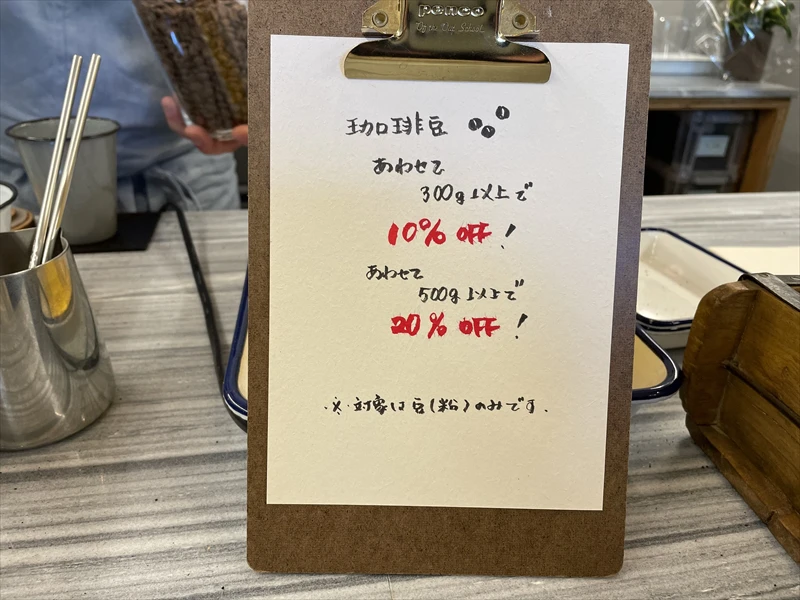 penco
珈琲豆
あわせて
300g以上で
10% OFF!
あわせて
500g以上で
20% OFF!
※対象は豆(粉)のみです.